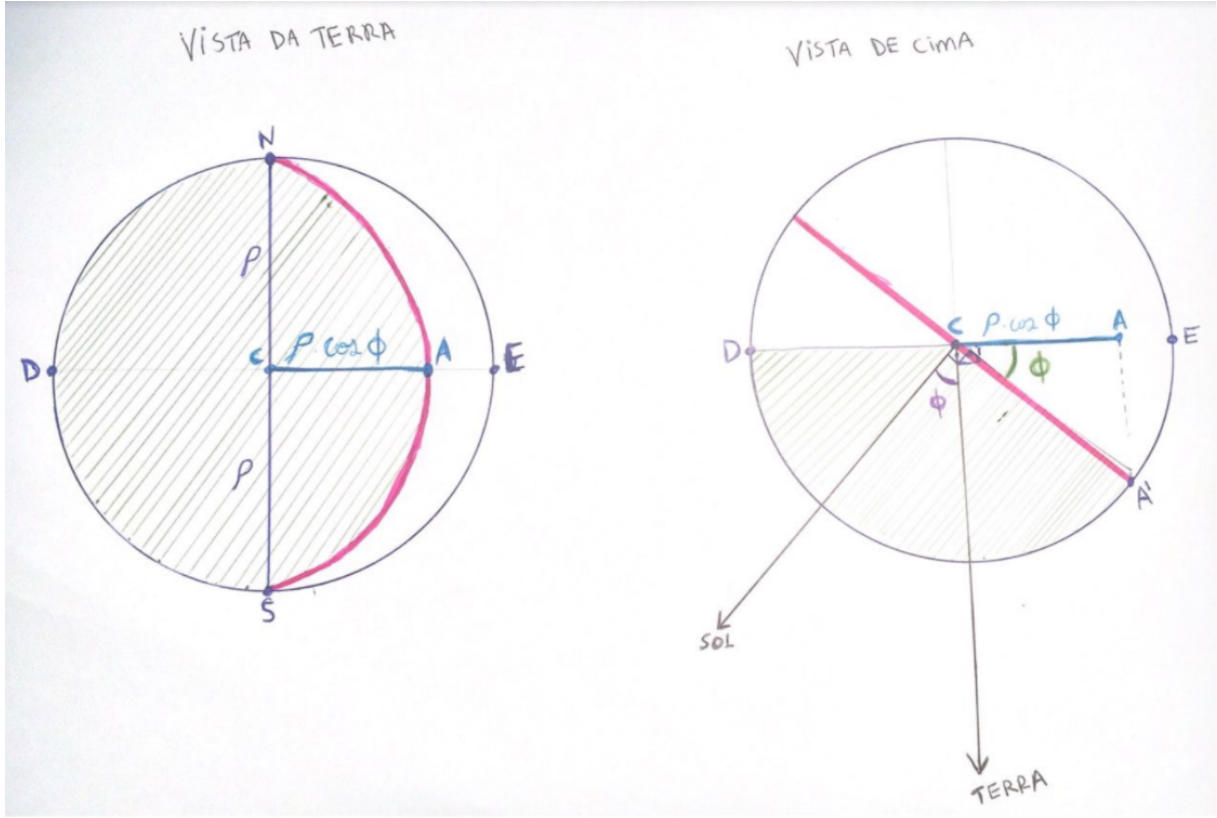 VISTA DA TERRA
N
ρ
D
C
ρ cos ϕ
A
E
ρ
S
VISTA DE CIMA
C
ρ·cos ϕ
A
D
E
ϕ
ϕ
A'
SOL
TERRA